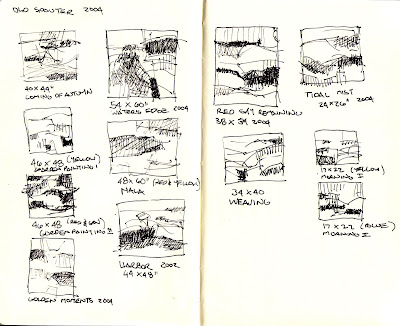 OLD SPOUTER 2004
40 x 44"
COMING OF AUTUMN
46 x 48 (YELLOW)
GARDEN PAINTING I
46 x 48 (RED &
GARDEN PAINTING II
GOLDEN MOMENTS 2004
54 x 60"
WATERS EDGE 2004
48 x 60" (RED & YELLOW)
HARBOR 2002
44 x 48"
RED SKY REMAINING
38 x 34 2004
34 x 40
WEAVING
TIDAL MIST
24 x 26" 2004
17 x 22 (YELLOW)
MORNING I
17 x 22 (BLUE)
MORNING I